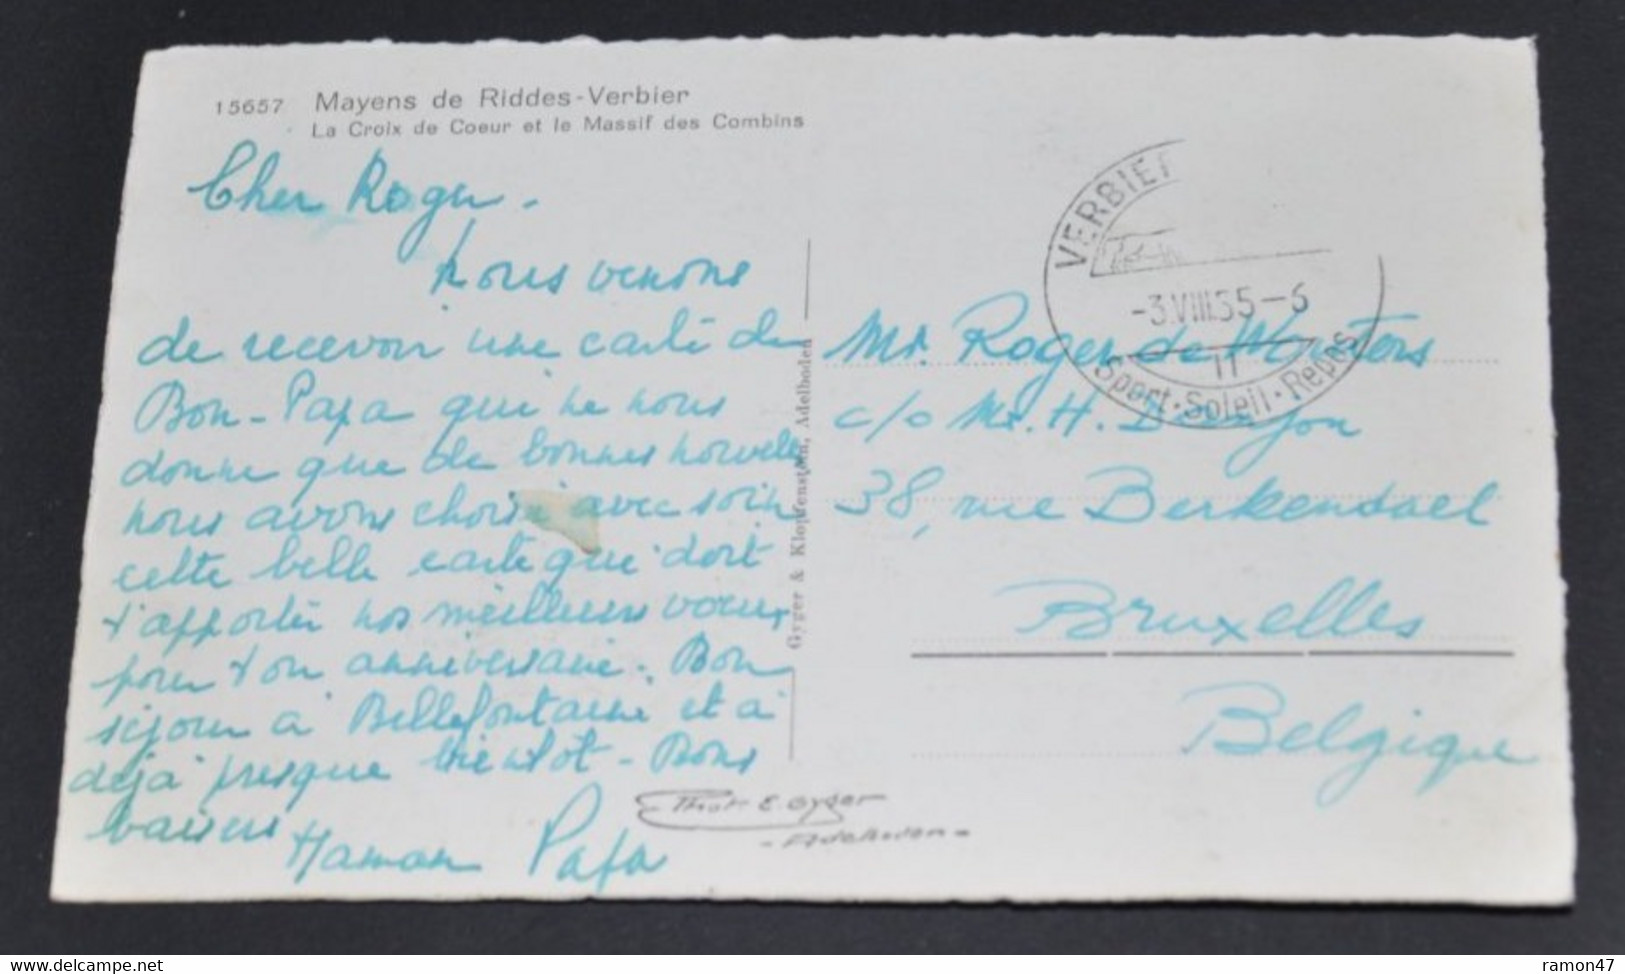 15657 Mayens de Riddes-Verbier
La Croix de Coeur et le Massif des Combins
Cher Roger -
Nous venons
de recevoir une carte de
Bon-Papa qui ne nous
donne que de bonnes nouvelles
nous avons choisi avec soin
cette belle carte qui doit
t'apporter nos meilleurs voeux
pour ton anniversaire. Bon
séjour à Bellefontaine et à
déjà presque bientôt - Bons
baisers
Maman Papa
Gyger & Klopfenstein, Adelboden
Phot. E. Gyger
- Adelboden -
VERBIER
-3.VIII.55-6
11
Sport·Soleil·Repos
Mr. Roger de
c/o Mr. H.
38, rue Berkendael
Bruxelles
Belgique
ramon47